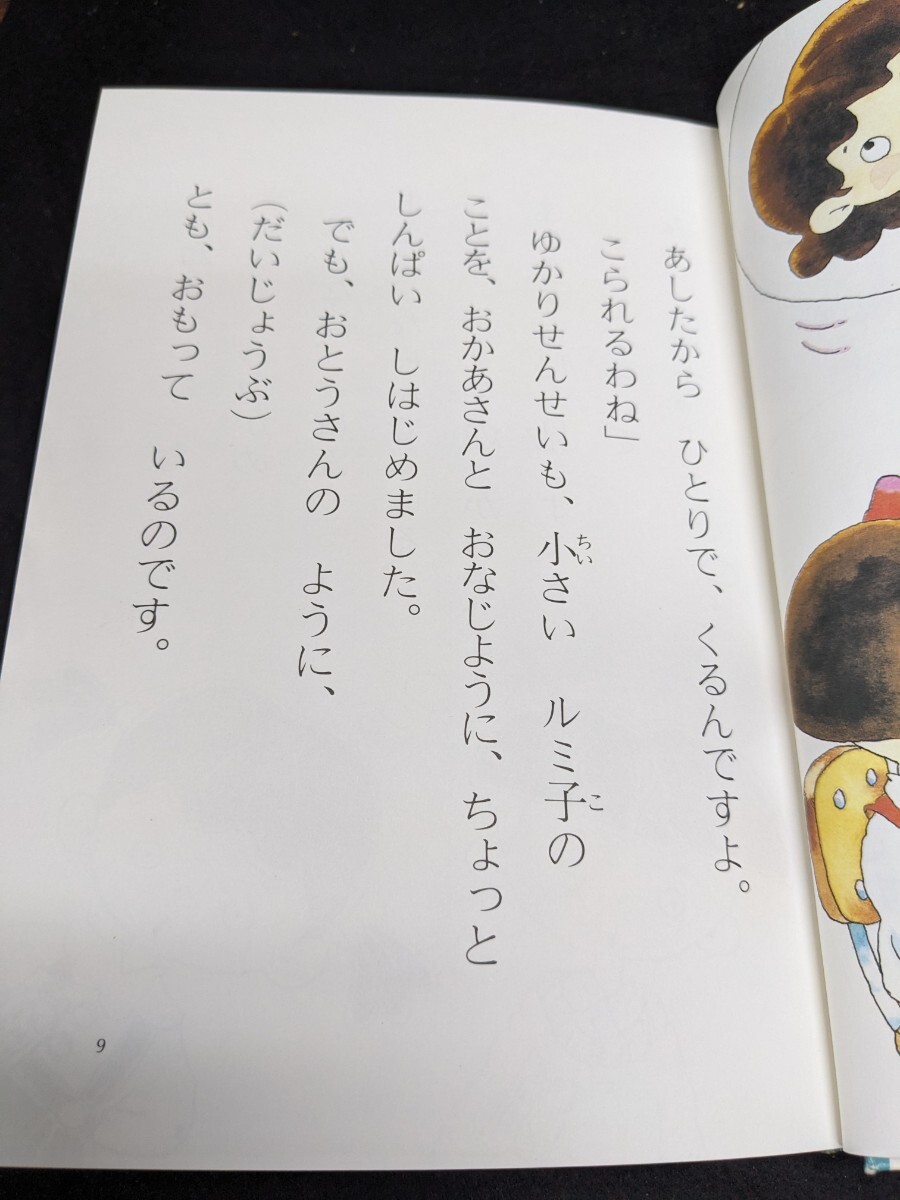 あしたから　ひとりで、くるんですよ。
こられるわね」
ゆかりせんせいも、小さい　ルミ子の
ことを、おかあさんと　おなじように、ちょっと
しんぱい　しはじめました。
でも、おとうさんの　ように、
（だいじょうぶ）
とも、おもって　いるのです。
ちい
こ
9